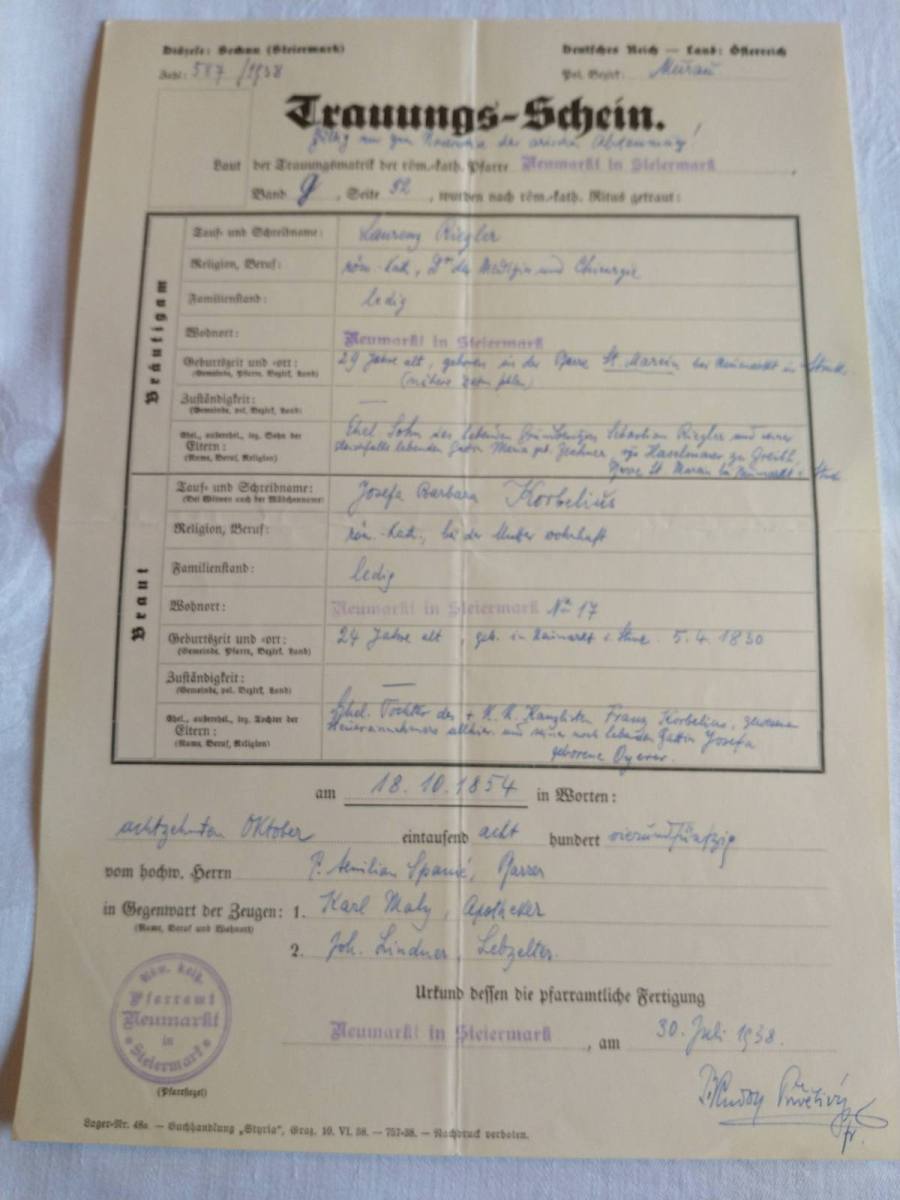 Diözese: Seckau (Steiermark)
Deutsches Reich — Land: Österreich
Zahl: 587/1938
Pol. Bezirk: Murau
Trauungs-Schein.
Gültig nur zum der arischen Abstammung!
Laut der Trauungsmatrik der röm.-kath. Pfarre Neumarkt in Steiermark
Band g, Seite 92, wurden nach röm.-kath. Ritus getraut:
Bräutigam
Tauf- und Schreibname: Laurenz Riegler
Religion, Beruf: röm.-kath., der Medizin und Chirurgie
Familienstand: ledig
Wohnort: Neumarkt in Steiermark
Geburtszeit und -ort: 29 Jahre alt, geboren in der Pfarre St. Marein bei Neumarkt in
(Gemeinde, Pfarre, Bezirk, Land) (nähere Daten fehlen)
Zuständigkeit: —
(Gemeinde, pol. Bezirk, Land)
Ehel., außerehel., leg. Sohn der Ehel. Sohn des lebenden Sebastian Riegler und seiner
Eltern: lebenden Gattin Maria geb. Zechner, vulgo zu Greith,
(Name, Beruf, Religion) Pfarre St. Marein bei Neumarkt
Braut
Tauf- und Schreibname: Josefa Barbara Korbelius
(Bei Witwen auch der Mädchenname)
Religion, Beruf: röm.-kath., bei der Mutter wohnhaft
Familienstand: ledig
Wohnort: Neumarkt in Steiermark No 17
Geburtszeit und -ort: 24 Jahre alt, geb. in Neumarkt 5.4.1830
(Gemeinde, Pfarre, Bezirk, Land)
Zuständigkeit: —
(Gemeinde, pol. Bezirk, Land)
Ehel., außerehel., leg. Tochter der Ehel. Tochter des + K. K. Kanzlisten Franz Korbelius, gewesenen
Eltern: Steuereinnehmers allhier und seiner noch lebenden Gattin Josefa
(Name, Beruf, Religion) geborene
am 18.10.1854 in Worten:
achtzehnten Oktober eintausend acht hundert vierundfünfzig
vom hochw. Herrn P. Aemilian Pfarrer
in Gegenwart der Zeugen: 1. Karl Maly, Apotheker
(Name, Beruf und Wohnort)
2. Joh. Lindner, Lebzelter.
Urkund dessen die pfarramtliche Fertigung
Neumarkt in Steiermark, am 30. Juli 1938.
Röm. kath.
Pfarramt
Neumarkt
in
Steiermark
(Pfarrsiegel)
Lager-Nr. 48a. — Buchhandlung „Styria“, Graz. 10. VI. 38. — 757-38. — Nachdruck verboten.